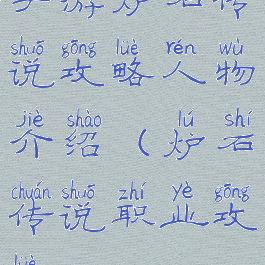 手游炉石传
shuō gōng lüè rén wù
说攻略人物
jiè shào lú shí
介绍（炉石
chuán shuō zhí yè gōng
传说职业攻
lüè